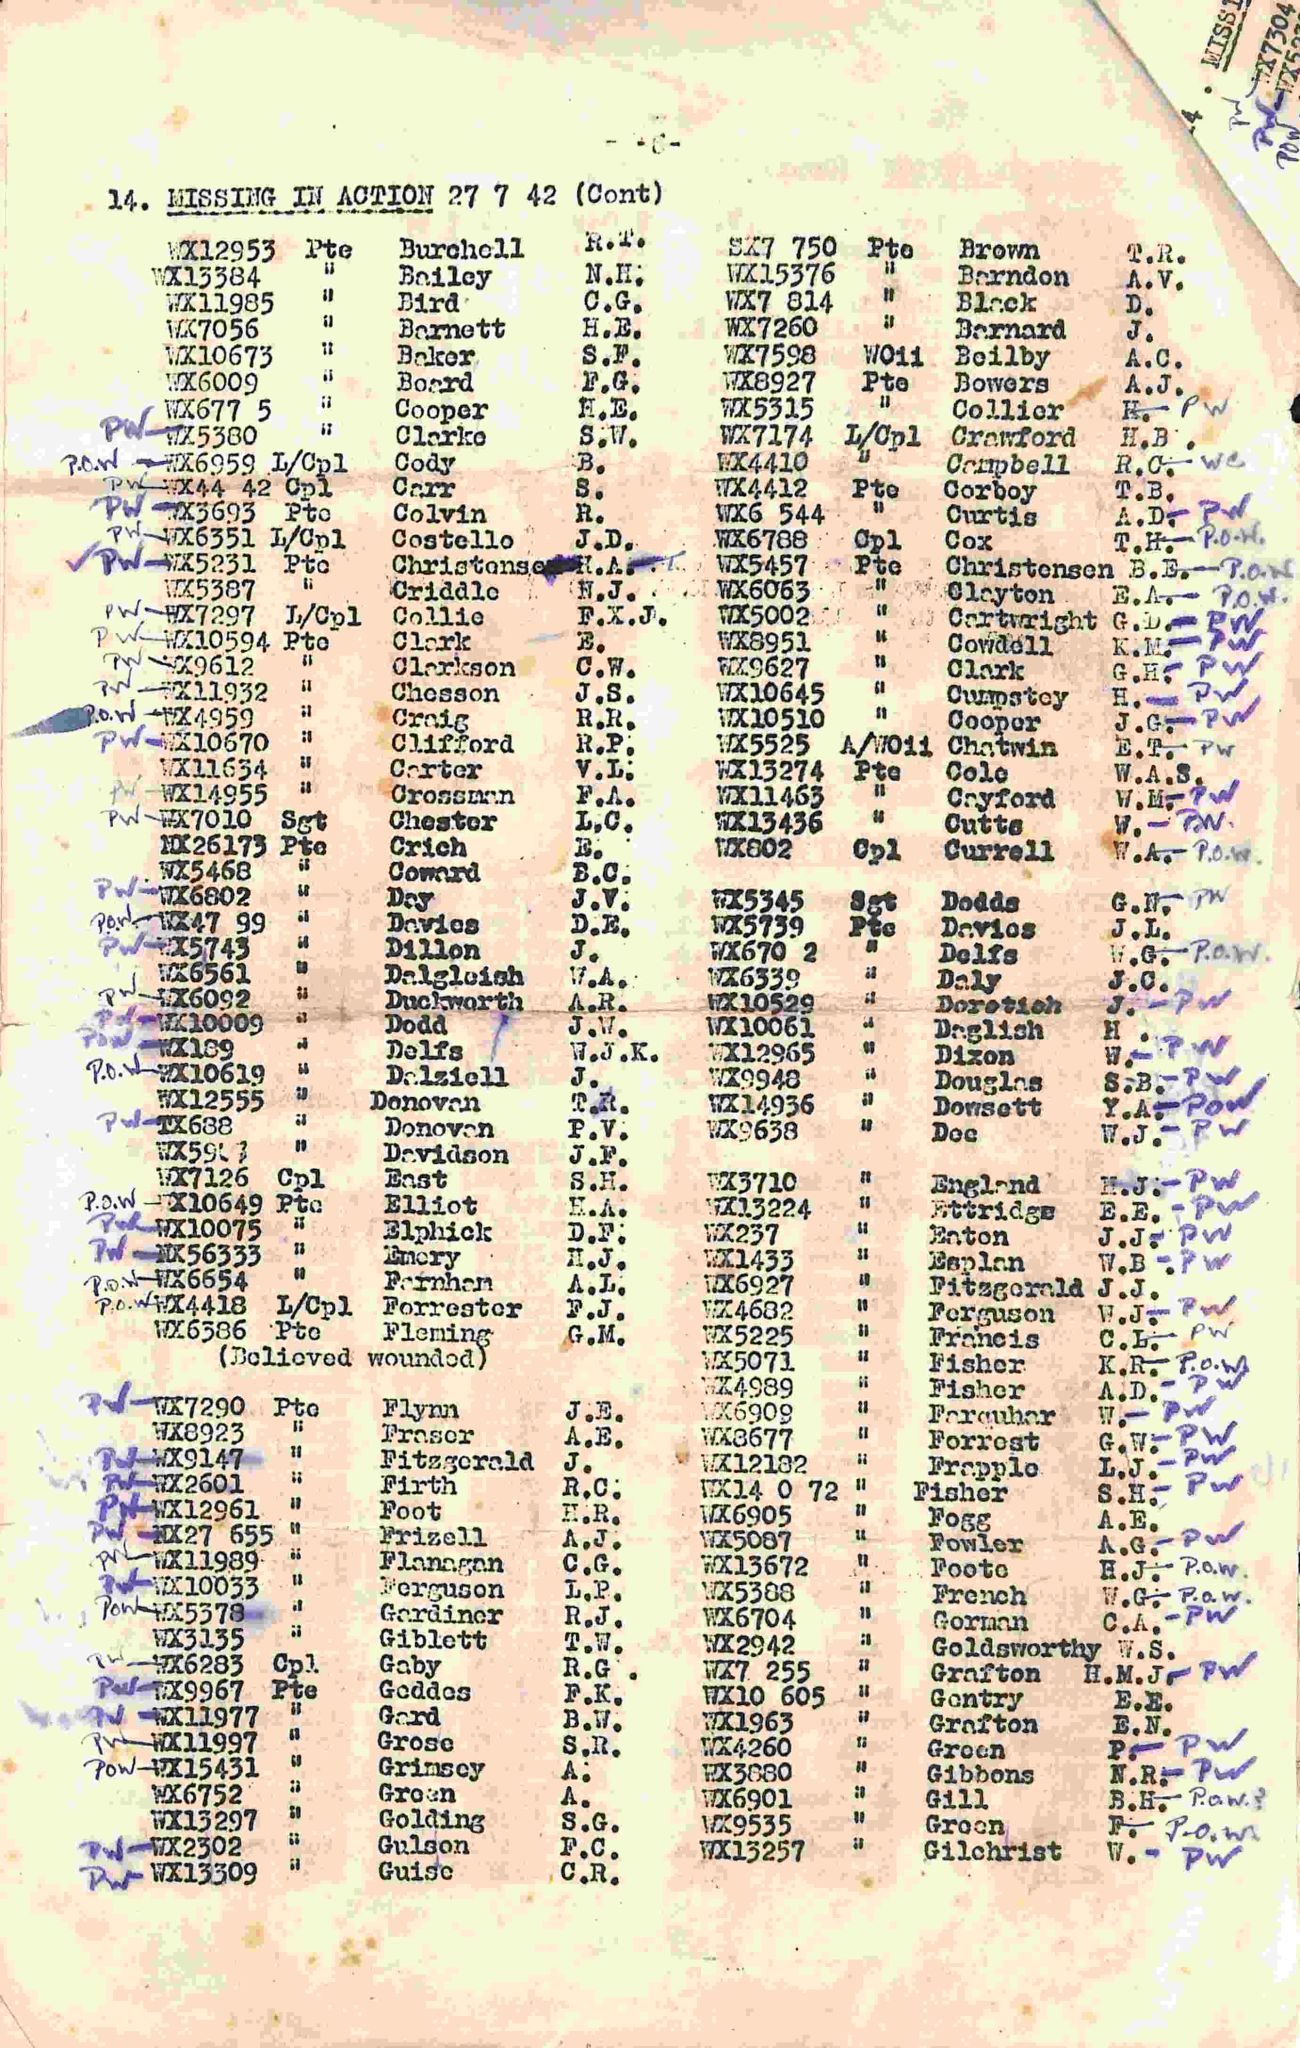 - -6-
14. MISSING IN ACTION 27 7 42 (Cont)
WX12953 Pte Burchell R.T.
WX13384 " Bailey N.H.
WX11985 " Bird C.G.
WX7056 " Barnett H.E.
WX10673 " Baker S.F.
WX6009 " Board F.G.
WX677 5 " Cooper H.E.
PW WX5380 " Clarke S.W.
P.O.W WX6959 L/Cpl Cody B.
PW WX44 42 Cpl Carr S.
PW WX3693 Pte Colvin R.
PW WX6351 L/Cpl Costello J.D.
PW WX5231 Pte Christensen H.A.
WX5387 " Criddle N.J.
PW WX7297 L/Cpl Collie F.X.J.
PW WX10594 Pte Clark E.
PW WX9612 " Clarkson C.W.
PW WX11932 " Chesson J.S.
P.O.W WX4959 " Craig R.R.
PW WX10670 " Clifford R.P.
WX11634 " Carter V.L.
PW WX14955 " Crossman F.A.
PW WX7010 Sgt Chester L.C.
NX26173 Pte Crich E.
WX5468 " Coward B.C.
PW WX6802 " Day J.V.
POW WX47 99 " Davies D.E.
PW WX5743 " Dillon J.
WX6561 " Dalgleish W.A.
PW WX6092 " Duckworth A.R.
PW WX10009 " Dodd J.W.
POW WX189 " Delfs W.J.K.
P.O.W WX10619 " Dalziell J.
WX12555 " Donovan T.R.
PW TX688 " Donovan P.V.
" Davidson J.F.
WX7126 Cpl East S.H.
P.O.W WX10649 Pte Elliot H.A.
PW WX10075 " Elphick D.F.
PW NX56333 " Emery H.J.
P.O.W WX6654 " Farnham A.L.
P.O.W WX4418 L/Cpl Forrester F.J.
WX6386 Pte Fleming G.M.
(Believed wounded)
PW WX7290 Pte Flynn J.E.
WX8923 " Fraser A.E.
PW WX9147 " Fitzgerald J.
PW WX2601 " Firth R.C.
PW WX12961 " Foot H.R.
PW NX27 655 " Frizell A.J.
PW WX11989 " Flanagan C.G.
PW WX10033 " Ferguson L.P.
POW WX5378 " Gardiner R.J.
WX3135 " Giblett T.W.
PW WX6283 Cpl Gaby R.G .
PW WX9967 Pte Geddes F.K.
PW WX11977 " Gard B.W.
PW WX11997 " Grose S.R.
POW WX15431 " Grimsey A.
WX6752 " Green A.
WX13297 " Golding S.G.
PW WX2302 " Gulson F.C.
PW WX13309 " Guise C.R.
SX7 750 Pte Brown T.R.
WX15376 " Barndon A.V.
WX7 814 " Black D.
WX7260 " Barnard J.
WX7598 WOii Beilby A.C.
WX8927 Pte Bowers A.J.
WX5315 " Collier H. PW
WX7174 L/Cpl Crawford H.B .
WX4410 " Campbell R.C.
WX4412 Pte Corboy T.B.
WX6 544 " Curtis A.D. PW
WX6788 Cpl Cox T.H. P.O.W.
WX5457 Pte Christensen B.E. P.O.W
WX6063 " Clayton E.A. P.O.W.
WX5002 " Cartwright G.D. PW
WX8951 " Cowdell K.M. PW
WX9627 " Clark G.H. PW
WX10645 " Cumpstey H. PW
WX10510 " Cooper J.G. PW
WX5525 A/WOii Chatwin E.T. PW
WX13274 Pte Cole W.A.S.
WX11463 " Cayford W.M. PW
WX13436 " Cutts W. P.W.
WX802 Cpl Currell W.A. P.O.W.
WX5345 Sgt Dodds G.N. PW
WX5739 Pte Davies J.L.
WX670 2 " Delfs W.G. P.O.W.
WX6339 " Daly J.C.
WX10529 " Doretich J. PW
WX10061 " Daglish H .
WX12965 " Dixon W. PW
WX9948 " Douglas S.B. PW
WX14936 " Dowsett Y.A. POW
WX9638 " Dee W.J. PW
WX3710 " England H.J. PW
WX13224 " Ettridge E.E. PW
WX237 " Eaton J.J. PW
WX1433 " Esplan W.B . PW
WX6927 " Fitzgerald J.J.
WX4682 " Ferguson W.J. PW
WX5225 " Francis C.L. PW
WX5071 " Fisher K.R. P.O.W.
WX4989 " Fisher A.D. PW
WX6909 " Farquhar W. PW
WX8677 " Forrest G.W. PW
WX12182 " Frapple L.J. PW
WX14 0 72 " Fisher S.H. PW
WX6905 " Fogg A.E.
WX5087 " Fowler A.G. PW
WX13672 " Foote H.J. P.O.W.
WX5388 " French W.G. P.O.W.
WX6704 " Gorman C.A. PW
WX2942 " Goldsworthy W.S.
WX7 255 " Grafton H.M.J. PW
WX10 605 " Gentry E.E.
WX1963 " Grafton E.N.
WX4260 " Green P. PW
WX3880 " Gibbons N.R. PW
WX6901 " Gill B.H. P.O.W.?
WX9535 " Green F. P.O.W.
WX13257 " Gilchrist W. PW
PW WX7304